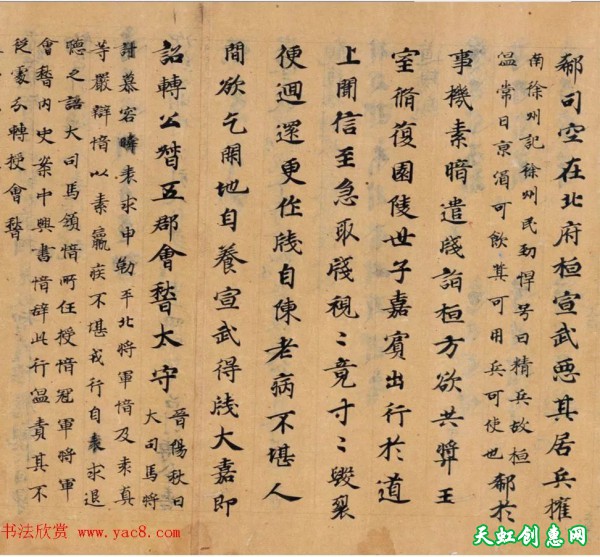 郗司空在北府桓宣武惡其居兵擁
南徐州記徐州民勁悍号曰精兵故桓
温常曰京酒可飲其可用兵可使也郗於
事機素暗遣牋詣桓方欲共獎王
室脩復園陵世子嘉賓出行於道
上聞信至急取牋視〻竟寸〻毀裂
便迴還更作牋自陳老病不堪人
間欲乞閑地自養宣武得牋大嘉即
詔轉公督五郡會稽太守
晉陽秋曰
大司馬將
討慕容暐表求申勸平北將軍愔及袁真
等嚴辯愔以素羸疾不堪戎行自表求退
聴之詔大司馬領愔所任授愔冠軍將軍
會稽内史案中興書愔辞此行温責其不
從處分轉授會稽
书法欣赏 www.yac8.com
天虹创惠网